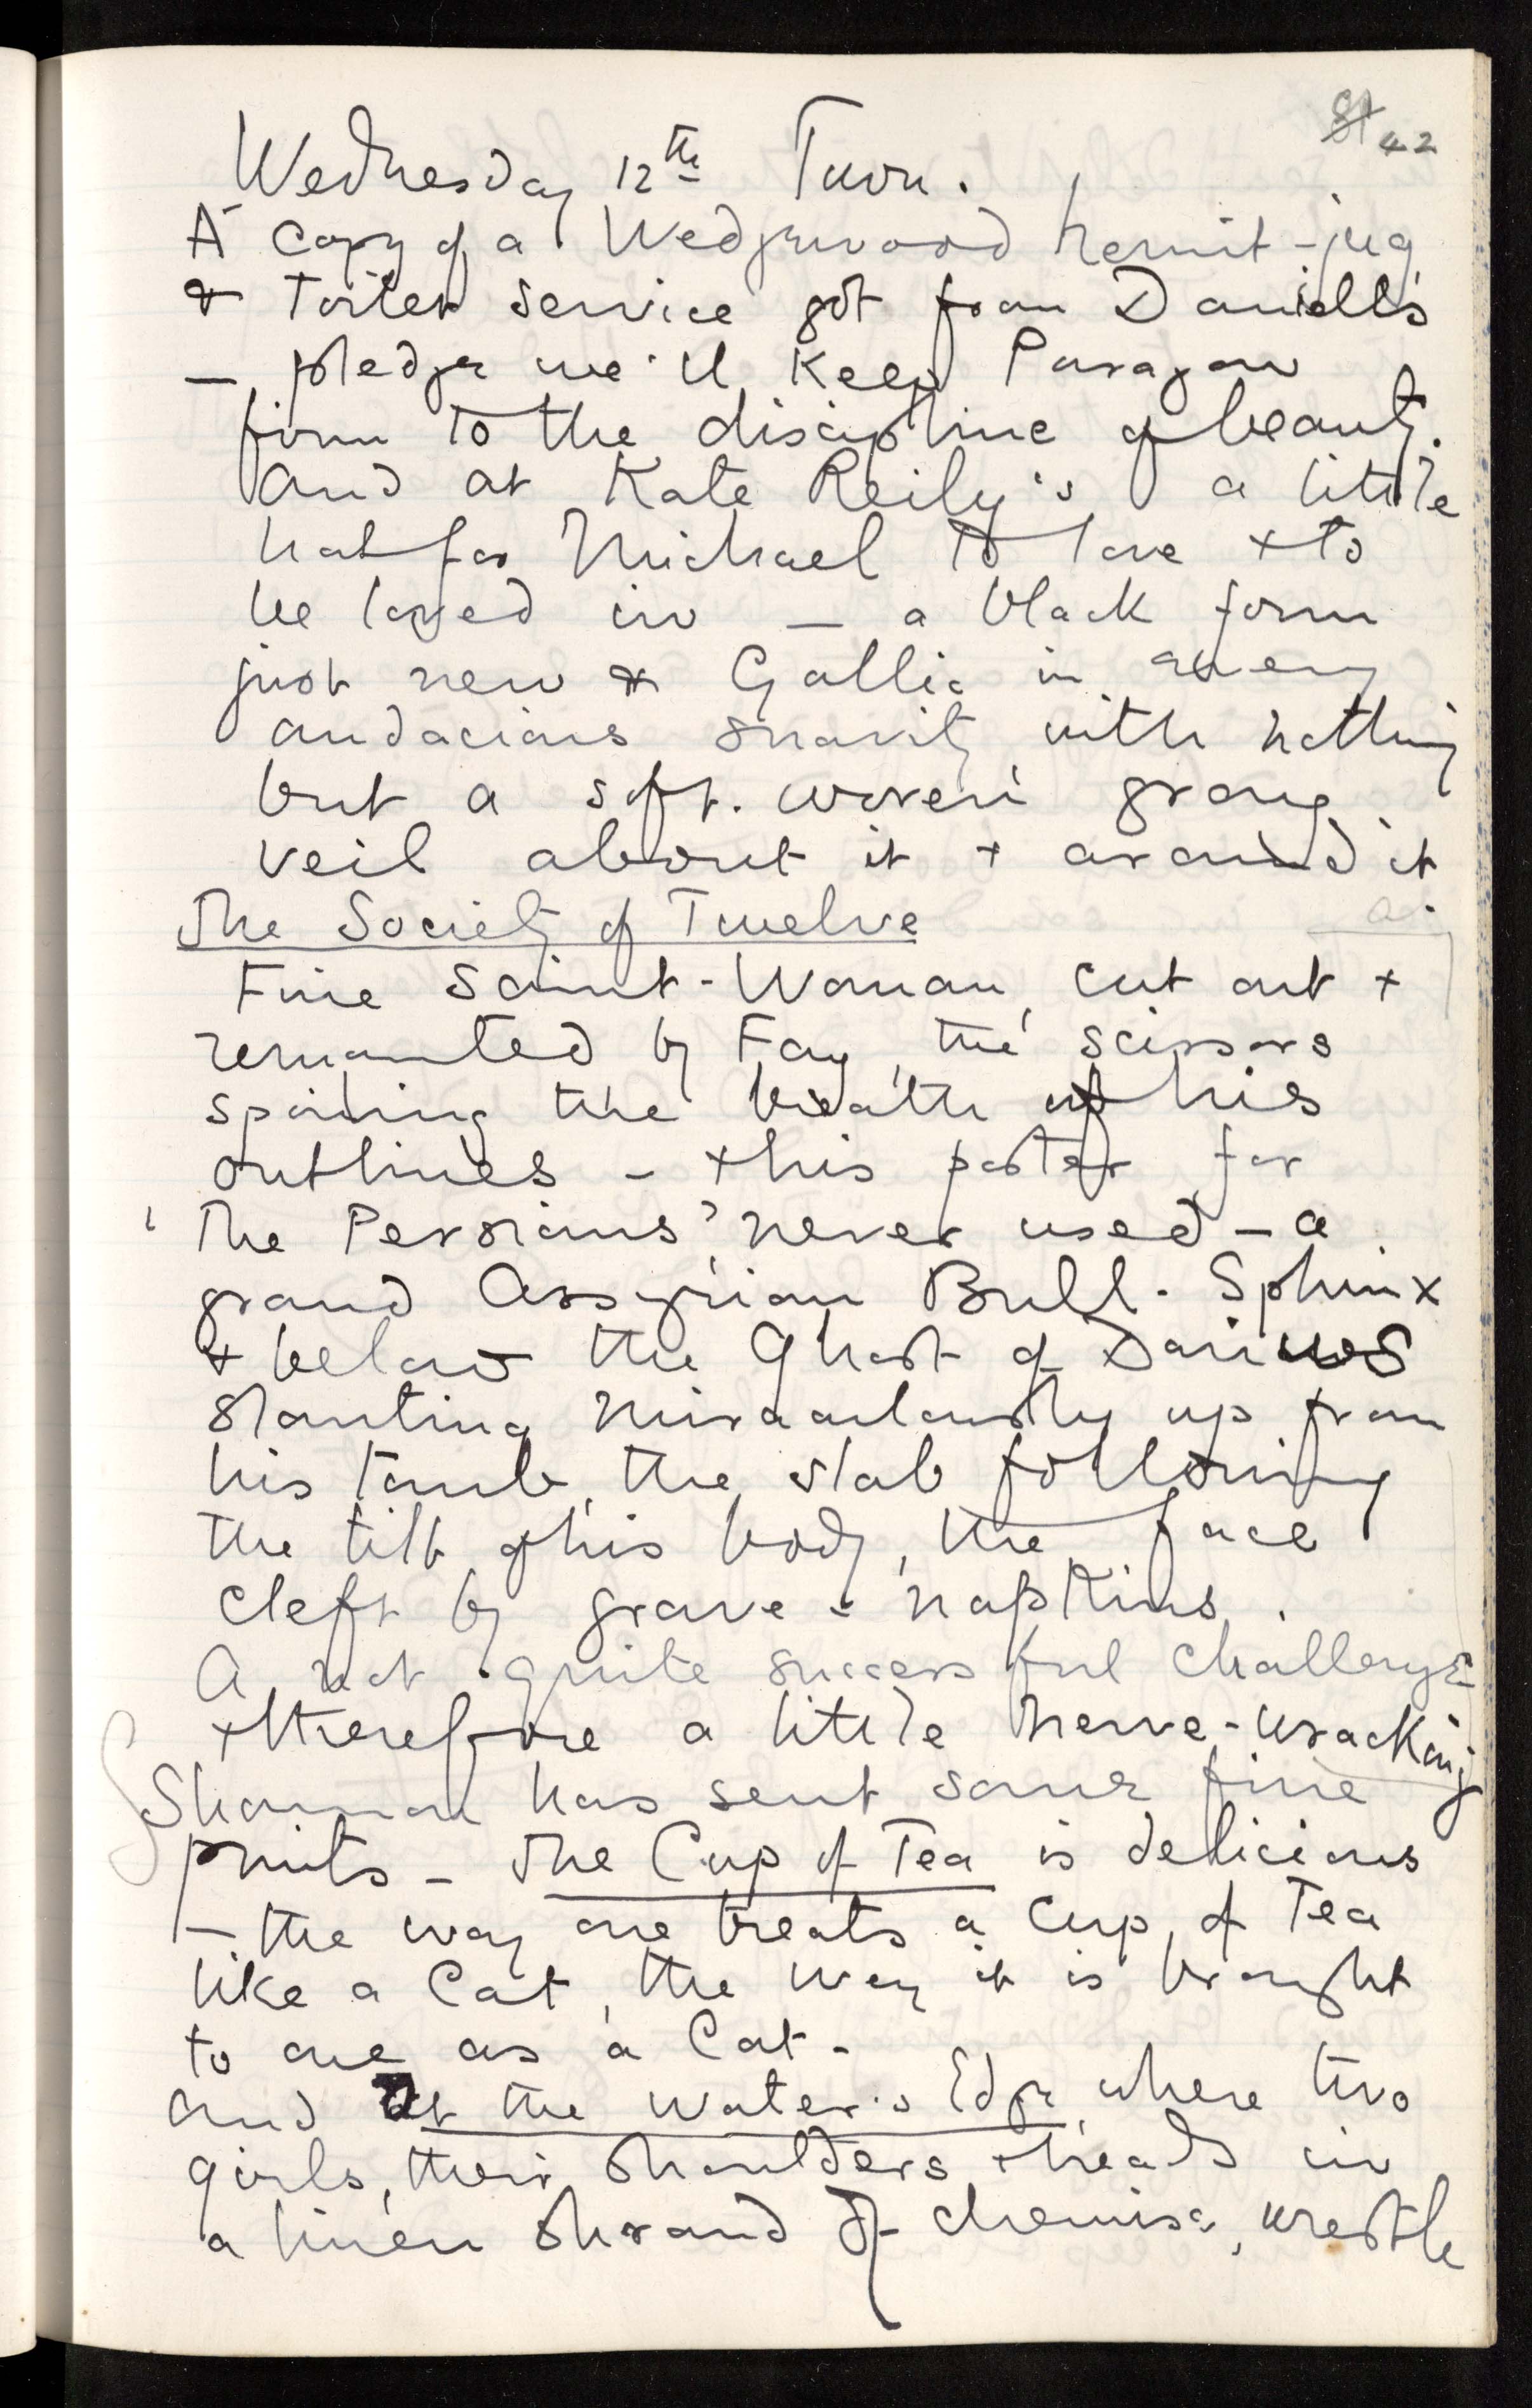 81 42
Wednesday 12th Town.
A copy of a Wedgewood hermit-jug
& Toilet service got from Daniells
— pledge we'll keep Paragon
firm to the discipline of beauty.
And at Kate Reily's a little
hat for Michael to love & to
be loved in — a black form
just new & Gallic in every
audacious suavity, with nothing
but a soft. woven grang
veil about it & around it
The Society of Twelve
Fine Saint-Woman, cut out &
remounted by Fay, the scissors
spoiling the breath of his
outlines - & his poster for
'The Persians' never used — a
grand Assyrian Bull-Sphinx
& below the Ghost of Darius
slanting miraculously up from
his tomb, the slab following
the tilt of his body, the face
cleft by grave-napkins.
A not quite successful challenge
& therefore a little nerve-wracking
Shannon has sent some fine
prints - The Cup of Tea is delicious
— the way one treats a Cup of Tea
like a Cat, the way it is brought
to one as a Cat -
And At the Water's Edge, where two
girls, their shoulders & heads in
a linen shroud of chemise, wrestle